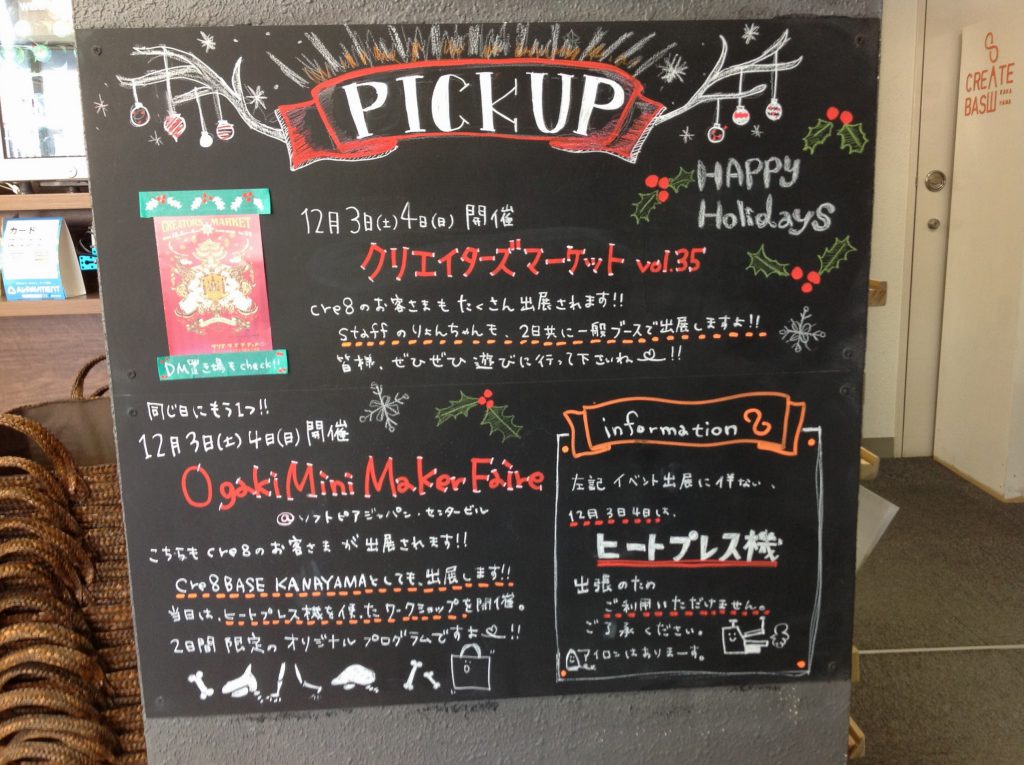 PICKUP
CREATE
BASE
KANA
YAMA
HAPPY
Holidays
CREATORS MARKET
12月3日(土)4日(日) 開催
クリエイターズマーケット vol.35
cre8のお客さまもたくさん出展されます!!
staffのりょんちゃんも、2日共に一般ブースで出展しますよ!!
皆様、ぜひぜひ遊びに行って下さいね!!
カード
DM置き場もcheck!!
同じ日にもう1つ!!
12月3日(土)4日(日)開催
Ogaki Mini Maker Faire
@ソフトピアジャパン・センタービル
こちらもcre8のお客さまが出展されます!!
Cre8BASE KANAYAMAとしても、出展します!!
当日は、ヒートプレス機を使ったワークショップを開催。
2日間限定のオリジナルプログラムですよ!!
information
左記イベント出展に伴ない、
12月3日4日は、
ヒートプレス機
出張のため
ご利用いただけません。
ご了承ください。
アイロンはありまーす。